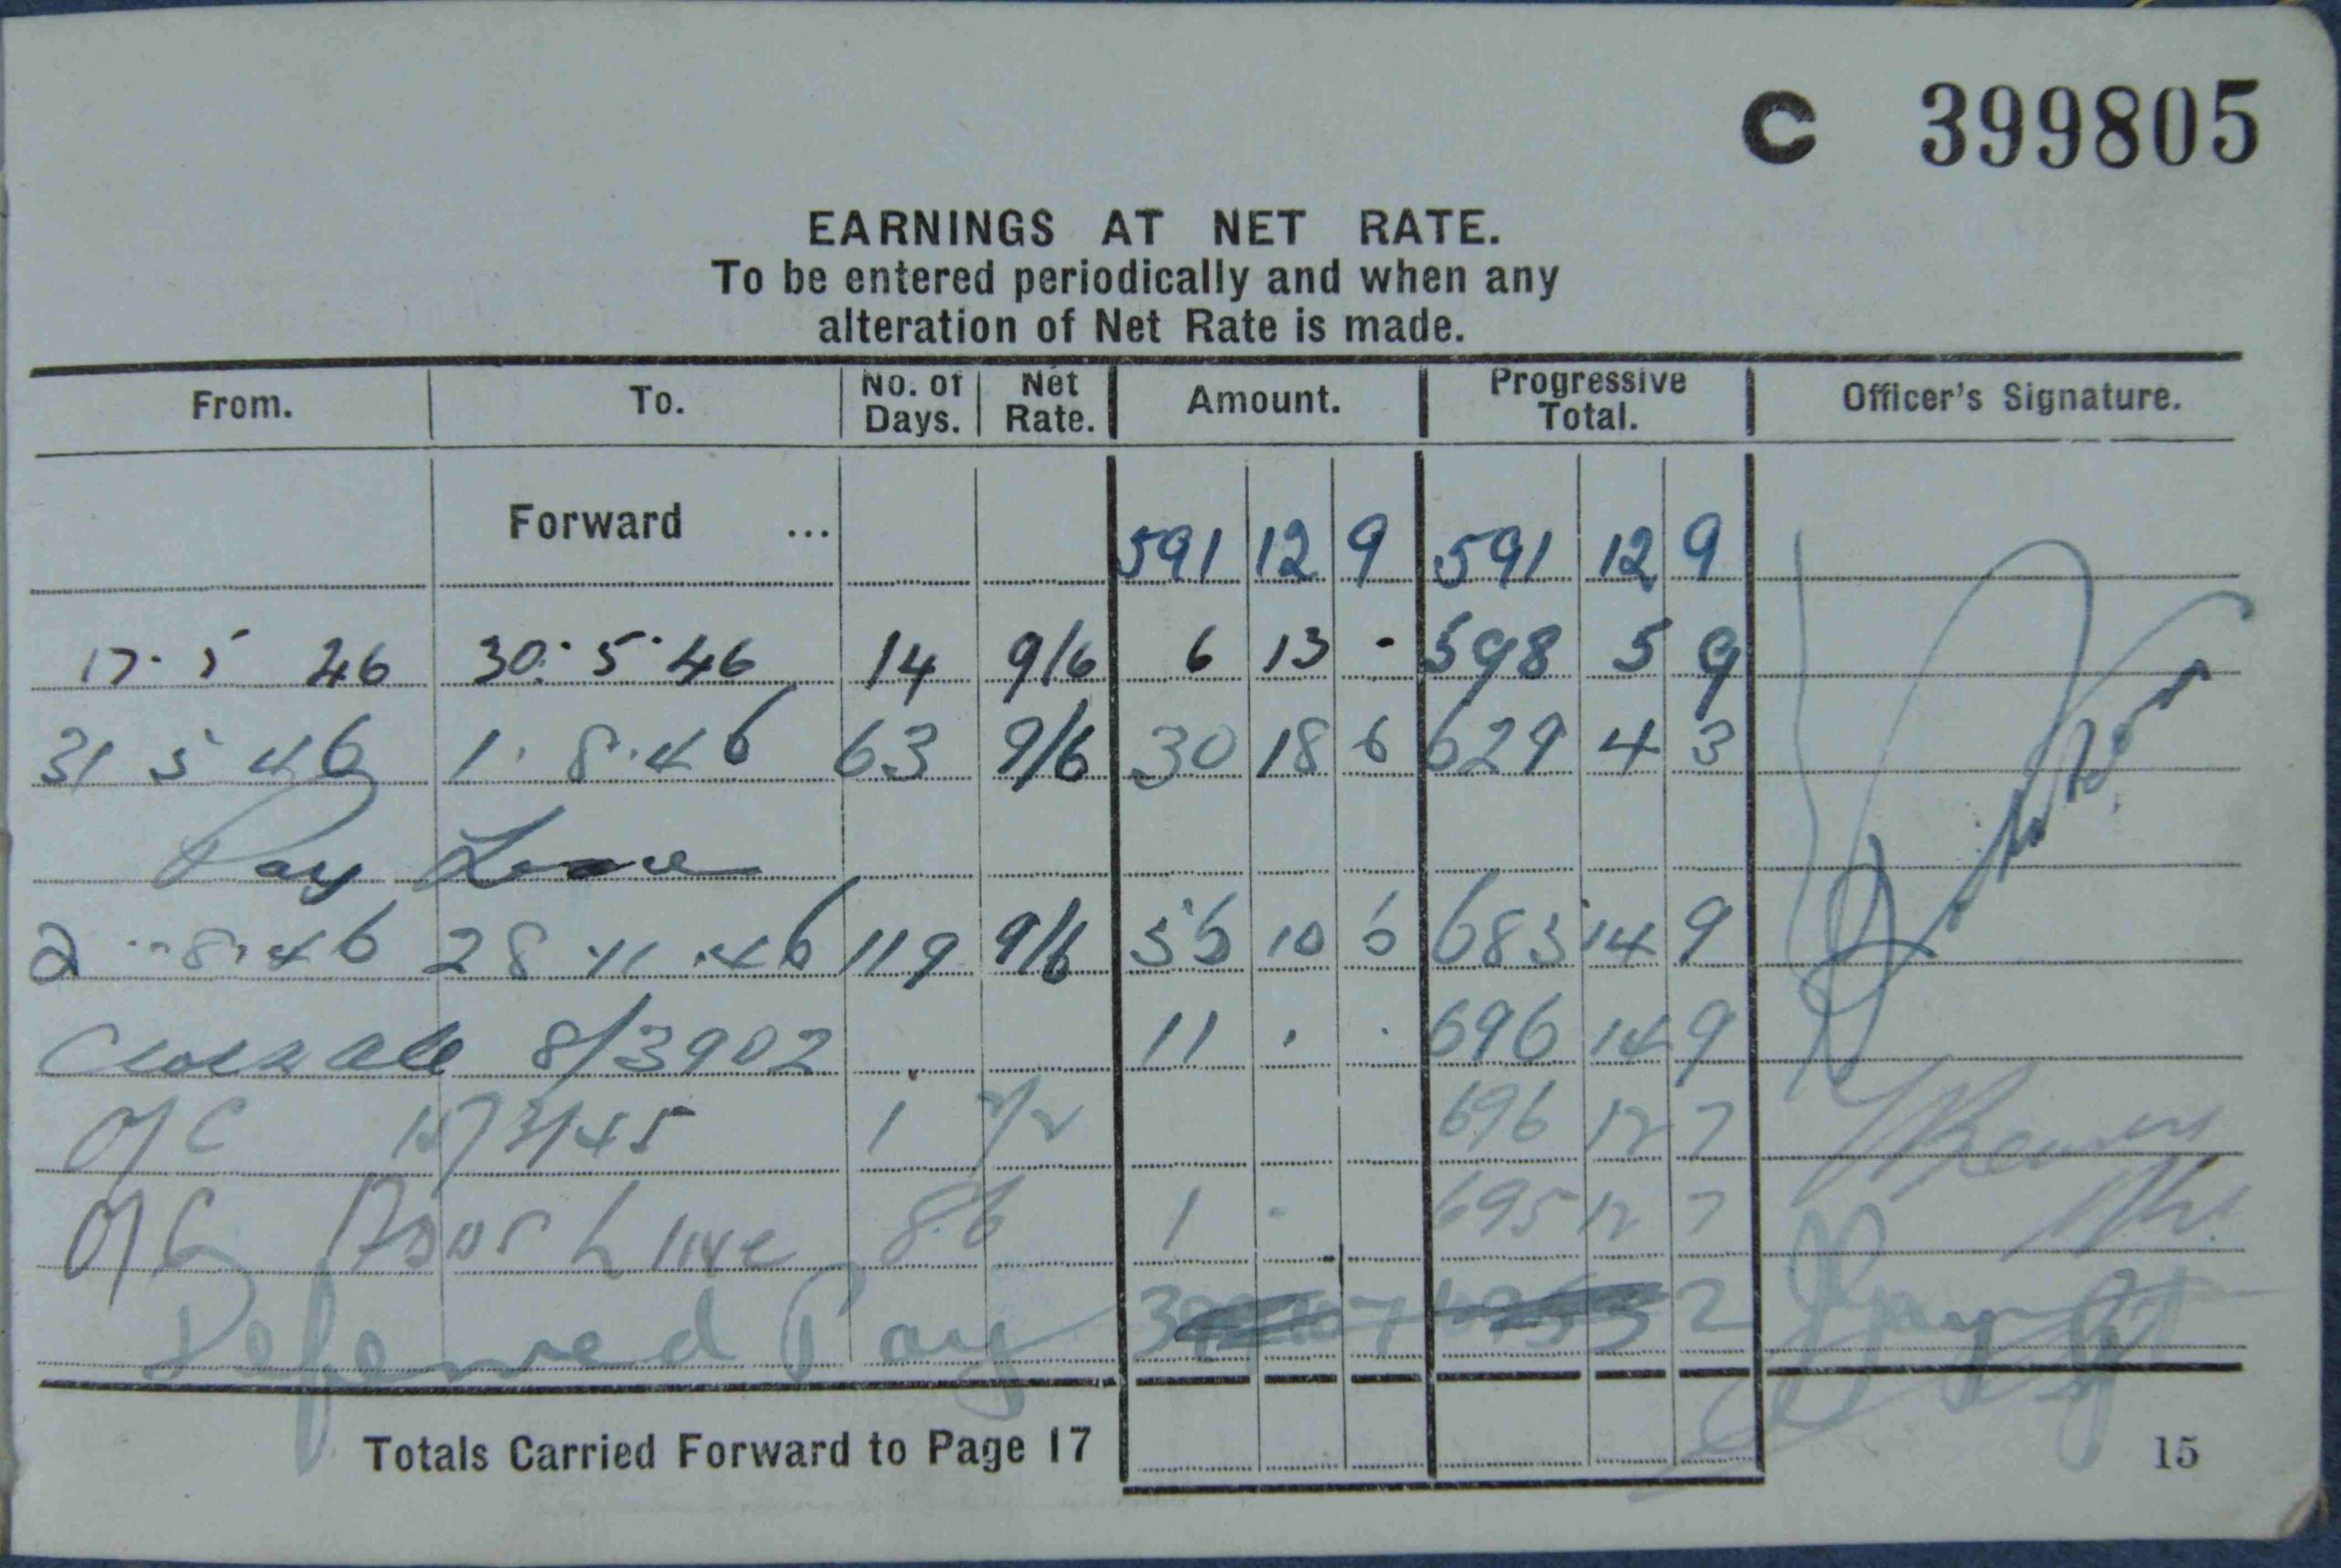 C 399805
EARNINGS AT NET RATE.
To be entered periodically and when any
alteration of Net Rate is made.
From. To. No. of Days. Net Rate. Amount. Progressive Total. Officer's Signature.
Forward ... 591 12 9 591 12 9
17. 5 46 30. 5. 46 14 9/6 6 13 - 598 5 9
31 5 46 1. 8. 46 63 9/6 30 18 6 629 4 3
Pay
2 8. 46 28 11 46 119 9/6 10 6 685 14 9
8/3902 11 . . 696 14 9
O/C 1 696 12 7
O/C 86 1 - 695 12 7
Deferred Pay 2
Totals Carried Forward to Page 17
15